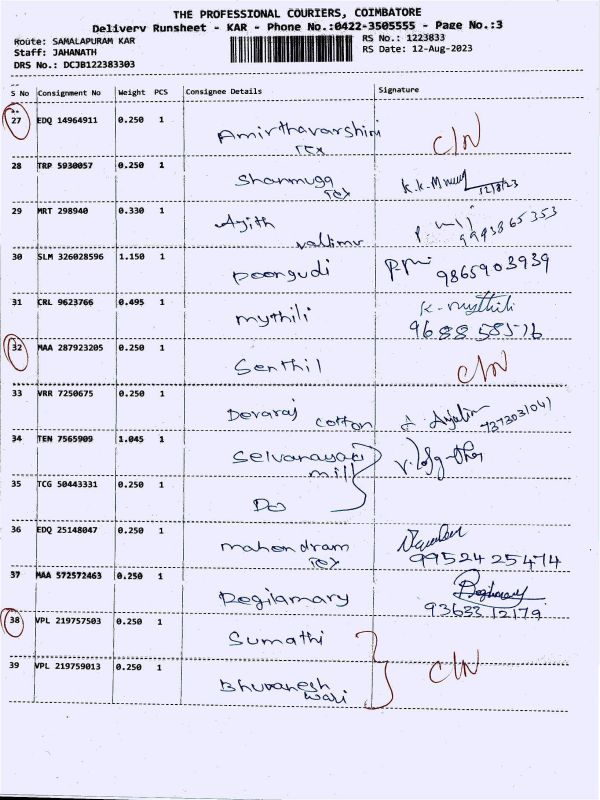 THE PROFESSIONAL COURIERS, COIMBATORE
Delivery Runsheet - KAR - Phone No.:0422-3505555 - Page No.:3
Route: SAMALAPURAM KAR RS No.: 1223833
Staff: JAHANATH RS Date: 12-Aug-2023
DRS No.: DCJB122383303
S No Consignment No Weight PCS Consignee Details Signature
27 EDQ 14964911 0.250 1 Amirthavarshini C/N
Tex
28 TRP 5930057 0.250 1 Shanmuga K.K.
Tex 12/8/23
29 MRT 298940 0.330 1 Ajith
9993865353
30 SLM 326028596 1.150 1 Poongudi 9865903939
31 CRL 9623766 0.495 1 mythili K. mythili
9688585716
32 MAA 287923205 0.250 1 Senthil C/N
33 VRR 7250675 0.250 1 Devaraj cotton
34 TEN 7565909 1.045 1 Selvanayaki
mill
35 TCG 50443331 0.250 1 Do
36 EDQ 25148047 0.250 1 mahendram
Tex 9952425474
37 MAA 572572463 0.250 1 Regilamary
9363312179
38 VPL 219757503 0.250 1 Sumathi
39 VPL 219759013 0.250 1 Bhuvanesh C/N
wari